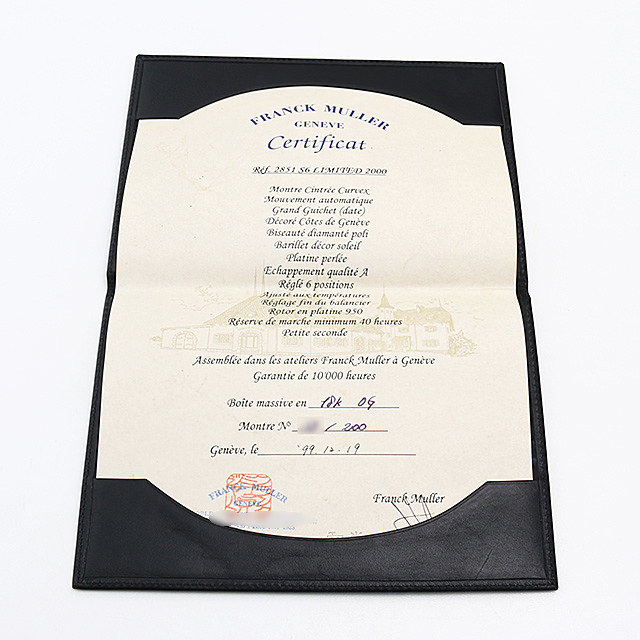 FRANCK MULLER
GENEVE
Certificat
Réf. 2851 S6 LIMITED 2000
Montre Cintrée Curvex
Mouvement automatique
Grand Guichet (date)
Décoré Côtes de Genève
Biseauté diamanté poli
Barillet décor soleil
Platine perlée
Echappement qualité A
Réglé 6 positions
Ajusté aux températures
Réglage fin du balancier
Rotor en platine 950
Réserve de marche minimum 40 heures
Petite seconde
Assemblée dans les ateliers Franck Muller à Genève
Garantie de 10'000 heures
Boîte massive en 18K OG
Montre N° / 200
Genève, le '99.12.19
FRANCK MULLER
GENEVE
Franck Muller